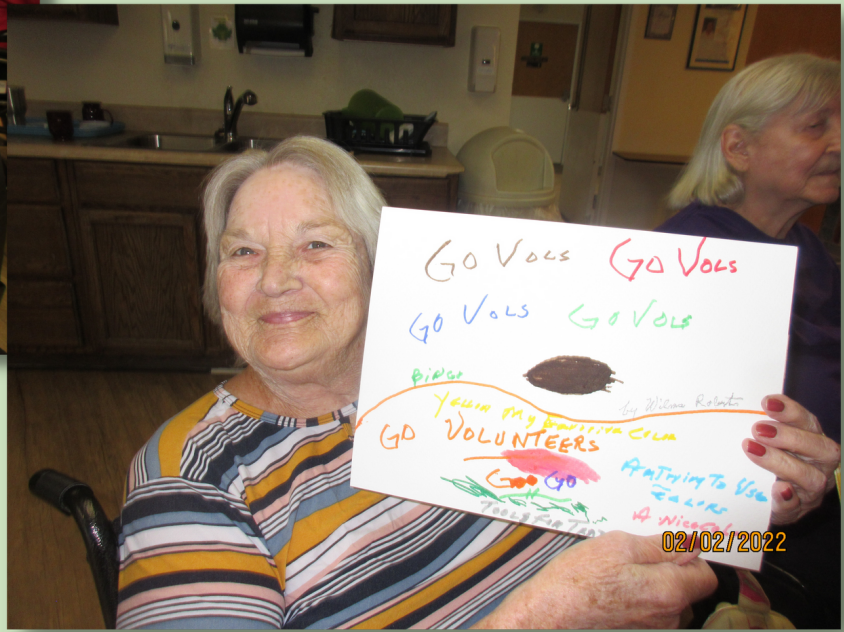 GO VOLS GO VOLS
GO VOLS GO VOLS
BINGO
by Wilma Roberts
Yellow My Favorite Color
GO VOLUNTEERS
Am Trying To Use
GOO GO
COLORS
TOOLS FOR
A Nice
02/02/2022